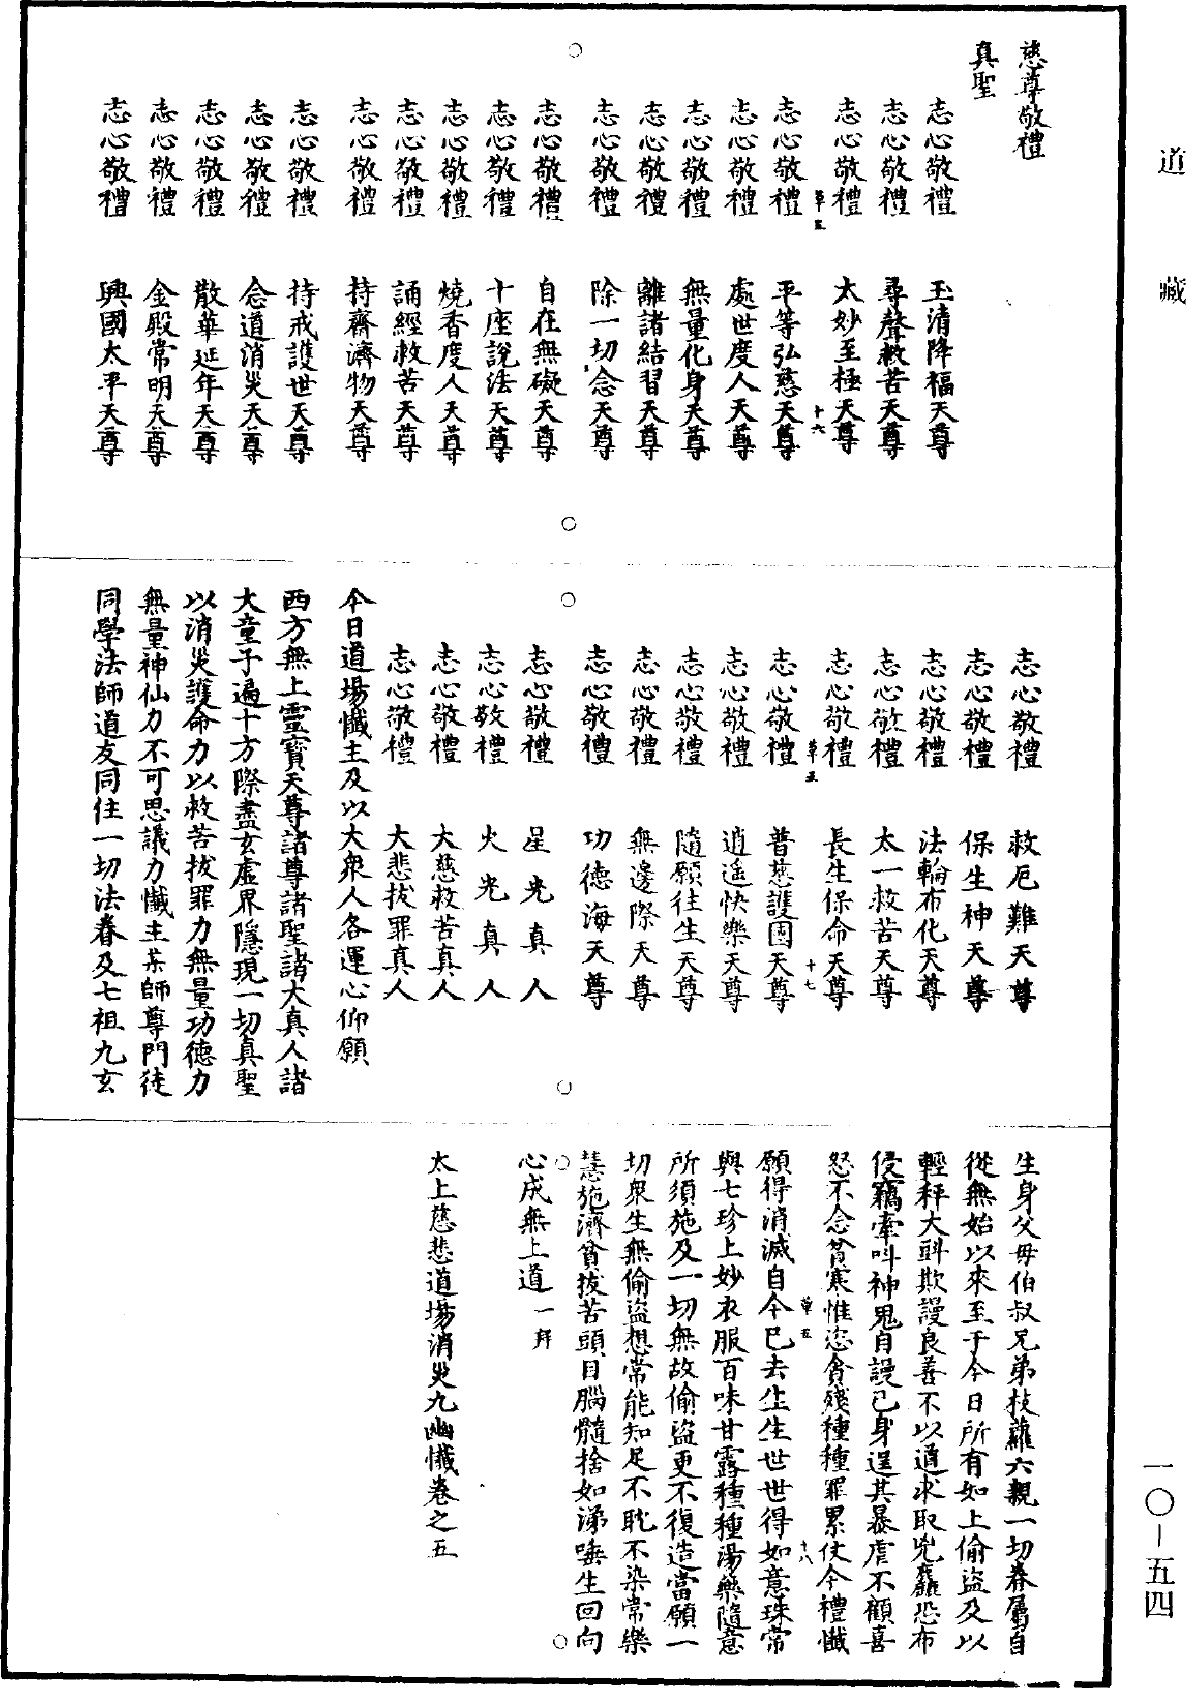 道藏
慈尊敬禮
真聖
志心敬禮 玉清降福天尊
志心敬禮 尋聲救苦天尊
志心敬禮 太妙至極天尊
草五 十六
志心敬禮 平等弘慈天尊
志心敬禮 處世度人天尊
志心敬禮 無量化身天尊
志心敬禮 離諸結習天尊
志心敬禮 除一切念天尊
志心敬禮 自在無礙天尊
志心敬禮 十座說法天尊
志心敬禮 燒香度人天尊
志心敬禮 誦經救苦天尊
志心敬禮 持齋濟物天尊
志心敬禮 持戒護世天尊
志心敬禮 念道消災天尊
志心敬禮 散華延年天尊
志心敬禮 金殿常明天尊
志心敬禮 興國太平天尊
志心敬禮 救厄難天尊
志心敬禮 保生神天尊
志心敬禮 法輪布化天尊
志心敬禮 太一救苦天尊
志心敬禮 長生保命天尊
草五 十七
志心敬禮 普慈護國天尊
志心敬禮 逍遥快樂天尊
志心敬禮 隨願往生天尊
志心敬禮 無邊際天尊
志心敬禮 功德海天尊
志心敬禮 星光真人
志心敬禮 火光真人
志心敬禮 大慈救苦真人
志心敬禮 大悲拔罪真人
今日道場懺主及以大衆人各運心仰願
西方無上靈寶天尊諸尊諸聖諸大真人諸
大童子遍十方際盡玄虛界隱現一切真聖
以消災護命力以救苦拔罪力無量功德力
無量神仙力不可思議力懺主某師尊門徒
同學法師道友同住一切法眷及七祖九玄
生身父母伯叔兄弟枝蘿六親一切眷屬自
從無始以來至于今日所有如上偷盜及以
輕秤大㪷欺謾良善不以道求取兇麤恐布
侵竊牽叫神鬼自謾己身逞其暴虐不顧喜
怒不念貧寒惟恣貪殘種種罪累仗今禮懺
草五 十八
願得消滅自今已去生生世世得如意珠常
與七珍上妙衣服百味甘露種種湯藥隨意
所須施及一切無故偷盜更不復造當願一
切衆生無偷盜想常能知足不耽不染常樂
慧施濟貧拔苦頭目腦髓捨如涕唾生回向
心成無上道 一拜
太上慈悲道場消災九幽懺卷之五
一〇—五四